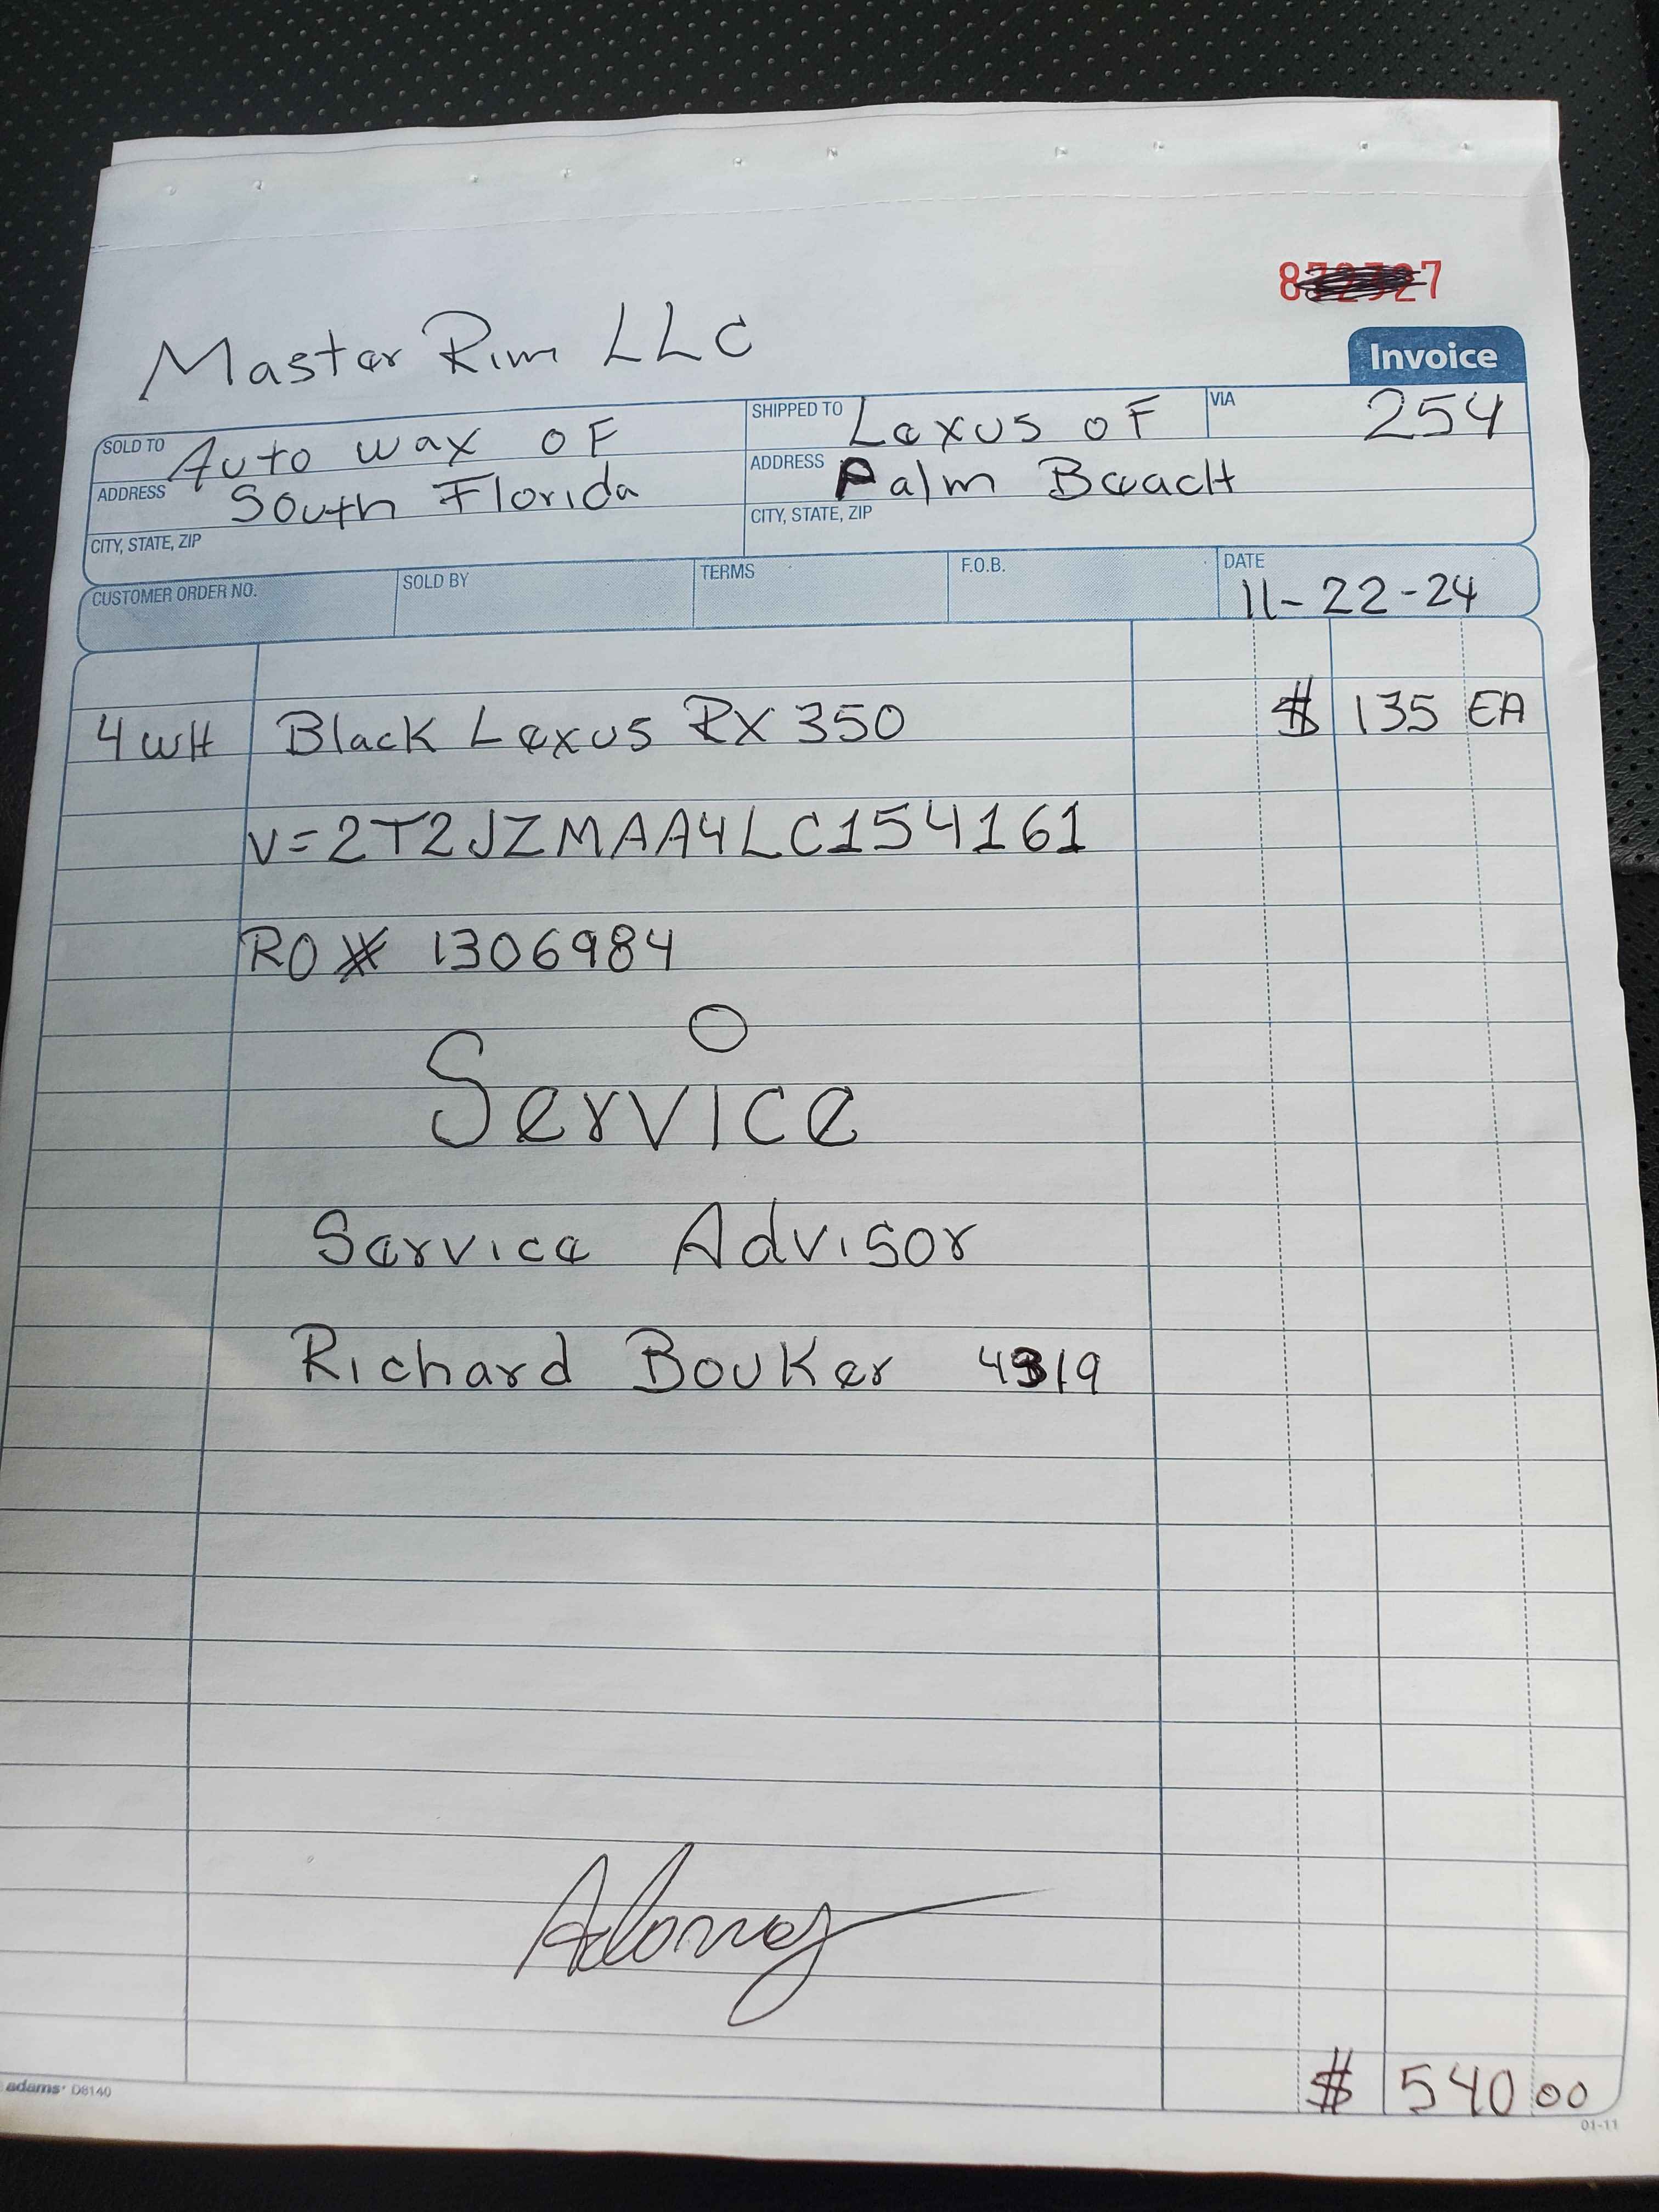 Master Rim LLC
Invoice
SOLD TO Auto wax of
SHIPPED TO Lexus of
VIA 254
ADDRESS South Florida
ADDRESS Palm Beach
CITY, STATE, ZIP
CITY, STATE, ZIP
CUSTOMER ORDER NO. SOLD BY TERMS F.O.B. DATE 11-22-24
4 WH Black Lexus RX 350 $ 135 EA
V=2T2JZMAA4LC154161
RO# 1306984
Service
Service Advisor
Richard Bouker 4319
$ 540 00
adams D8140
01-11